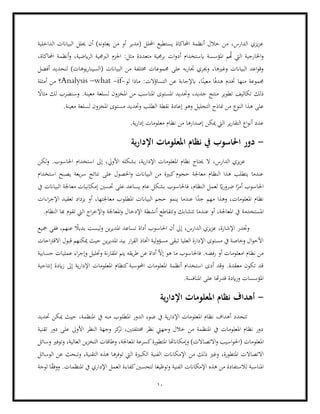 عزيزي الدارس، من خلال أنظمة المحاكاة يستطيع المحلل (مدير أو من يعاونه) أن يحلل البيانات الداخلية
والخارجية التي تهم المؤسسة باستخدام أدوات برامجية متعددة مثل: الحزم البرامجية الرياضية، وأنظمة المحاكاة،
وقواعد البيانات وغيرها. ويجري تجاربه على مجموعات مختلفة من البيانات (السيناريوهات) لتحديد أفضل
مجموعة منها تخدم هدفاً معيناً، بالإجابة عن التساؤلات: ماذا لو-Analysis –what –if؟ من أمثلة
ذلك تكاليف تطوير منتج جديد، وتحديد المستوى المناسب من المخزون لسلعة معينة. وسنضرب لك مثالاً
على هذا النوع من نماذج التحليل وهو إعادة نقطة الطلب وتحديد مستوى المخزون لسلعة معينة.
عدد أنواع التقارير التي يمكن إصدارها من نظام معلومات إدارية.
- دور الحاسوب في نظام المعلومات الإدارية
عزيزي الدارس، لا يحتاج نظام المعلومات الإدارية، بشكله الأولي، إلى استخدام الحاسوب. ولكن
عندما يتطلب هذا النظام معالجة حجوم كبيرة من البيانات والحصول على نتائج سريعة يصبح استخدام
الحاسوب أمراً ضرورياً لعمل النظام، فالحاسوب بشكل عام يساعد على تحسين إمكانيات معالجة البيانات في
نظام المعلومات، وهذا مهم جداً عندما ينمو حجم البيانات المطلوب معالجتها، أو يزداد تعقيد الإجراءات
المستخدمة في المعالجة، أو عندما تتشابك وتتقاطع أنشطة الإدخال والمعالجة والإخراج التي تقوم بها النظام.
وتجدر الإشارة، عزيزي الدارس، إلى أن الحاسوب أداة تساعد المديرين وليست بديلاً عنهم، ففي جميع
الأحوال وخاصة في مستوى الإدارة العليا تبقى مسؤولية اتخاذ القرار بيد المديرين حيث يمكنهم قبول الاقتراحات
من نظام المعلومات أو رفضه. فالحاسوب ما هو إلا أداة عن طريقه يتم المقارنة وتحليل وإجراء عمليات حسابية
قد تكون معقدة. وقد أدى استخدام أنظمة المعلومات المحوسبة كنظام المعلومات الإدارية إلى زيادة إنتاجية
المؤسسات وزيادة قدرتها على المنافسة.
- أهداف نظام المعلومات الإدارية
تتحدد أهداف نظام المعلومات الإدارية في ضوء الدور المطلوب منه في المنظمة، حيث يمكن تحديد
دور نظام المعلومات في المنظمة من خلال وجهتي نظر مختلفتين، تركز وجهة النظر الأولى على دور تقنية
المعلومات (الحواسيب والاتصالات) وإمكاناتها المتطورة كسرعة المعالجة، وطاقات التخزين العالية، وتوفير وسائل
الاتصالات المتطورة، وغير ذلك من الإمكانات الفنية الكبيرة التي توفرها هذه التقنية، وتبحث عن الوسائل
المناسبة للاستفادة من هذه الإمكانات الفنية وتوظيفها لتحسين كفاءة العمل الإداري في المنظمات. ووفقاً لوجهة
١٠